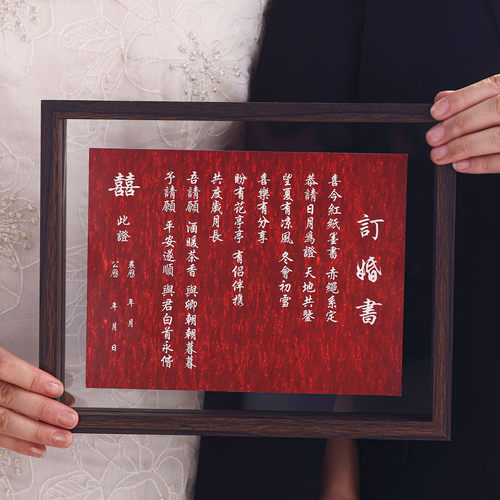 訂婚書
喜今紅紙墨書 赤繩系定
恭請日月為證 天地共鑒
望夏有凉風 冬會初雪
喜樂有分享
盼有花亭亭 有侶伴携
共度歲月長
吾請願 酒暖茶香 與卿朝朝暮暮
予請願 平安遂順 與君白首永偕
囍
此證
農歷 年 月
公歷 年 月 日